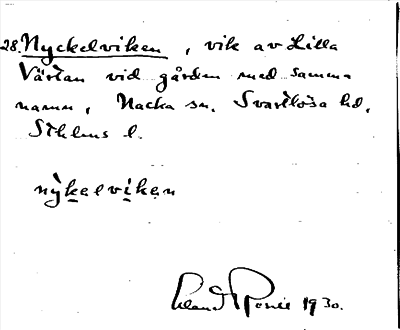 28. Nyckelviken, vik av Lilla
Värtan vid gården med samma
namn, Nacka sn. Svartlösa hd.
Sthlms l.
nỳkelviken
1930.